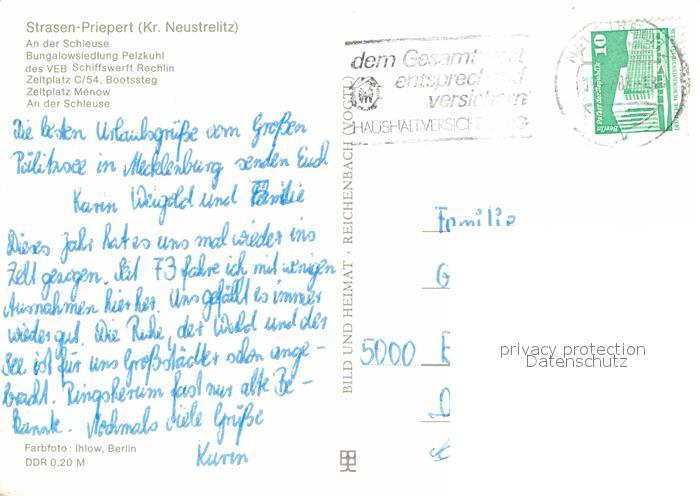 Strasen-Priepert (Kr. Neustrelitz)
An der Schleuse
Bungalowsiedlung Pelzkuhl
des VEB Schiffswerft Rechlin
Zeltplatz C/54, Bootssteg
Zeltplatz Menow
An der Schleuse
Die besten Urlaubsgrüße vom Großen
Pälitzsee in Mecklenburg senden Euch
Karin Weigold und Familie
Dieses Jahr hat es uns mal wieder ins
Zelt gezogen. Seit 73 fahre ich mit wenigen
Ausnahmen hierher. Uns gefällt es immer
wieder gut. Die Ruhe, der Wald und der
See ist für uns Großstädter schon ange-
bracht. Ringsherum fast nur alte Be-
kannte. Nochmals viele Grüße
Karin
Farbfoto: Ihlow, Berlin
DDR 0,20 M
BILD UND HEIMAT · REICHENBACH (VOGTL)
dem Gesamtwert
entsprechend
versichern
HAUSHALTVERSICHERUNG
10
Berlin, Palast der Republik
Familie
G
5000
privacy protection
Datenschutz